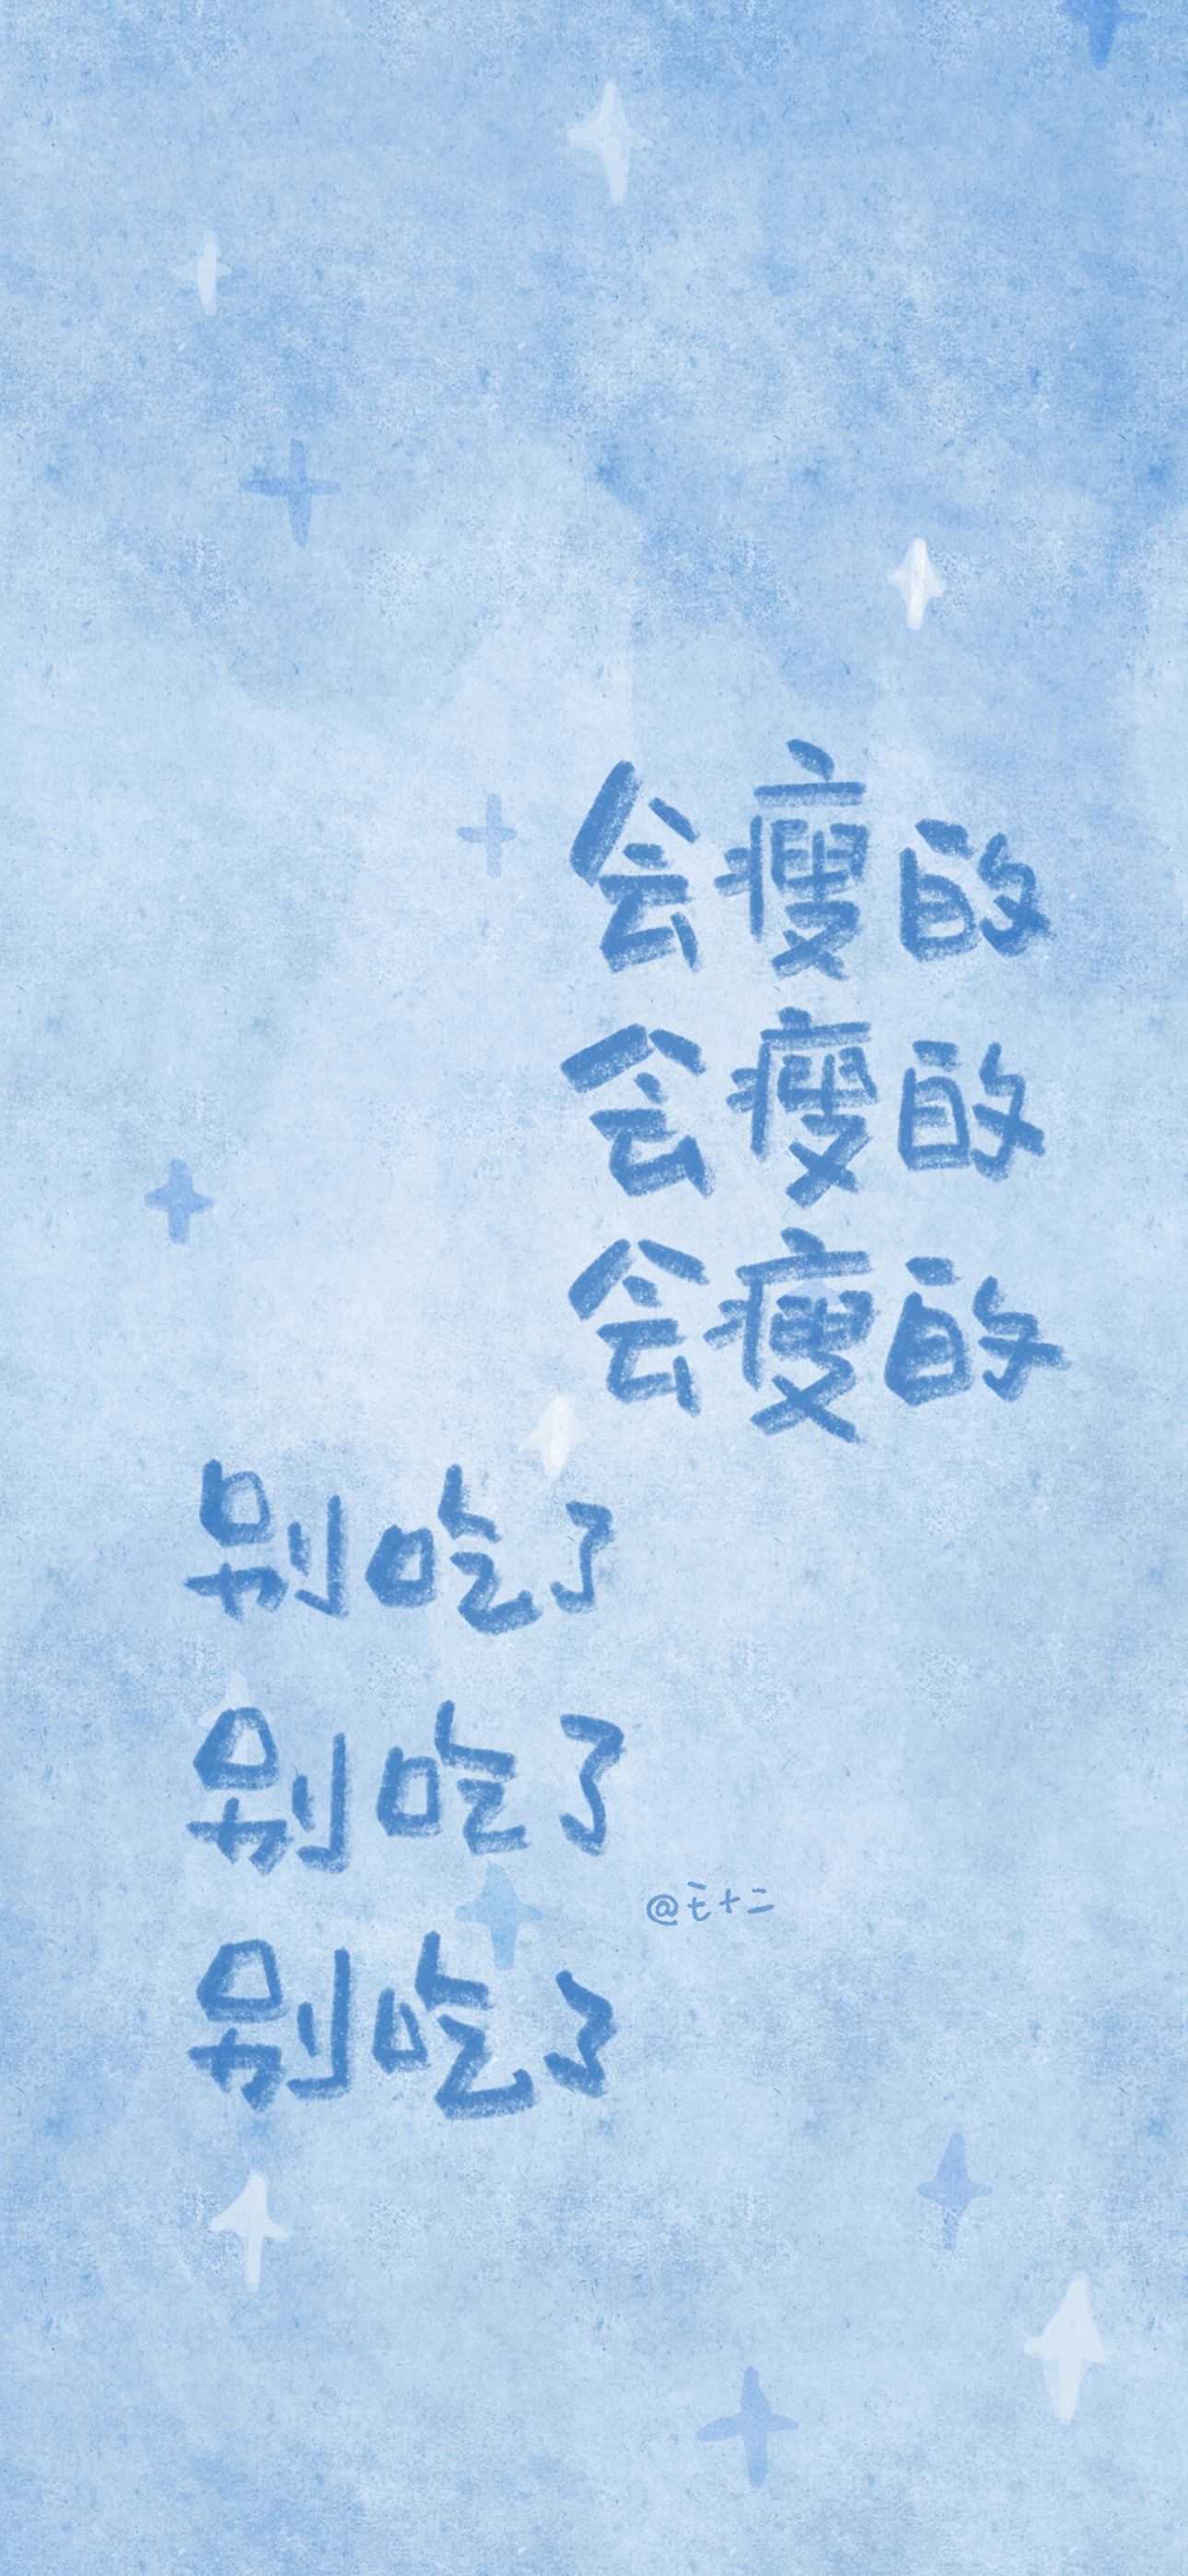 会瘦的
会瘦的
会瘦的
别吃了
别吃了
@七十二
别吃了